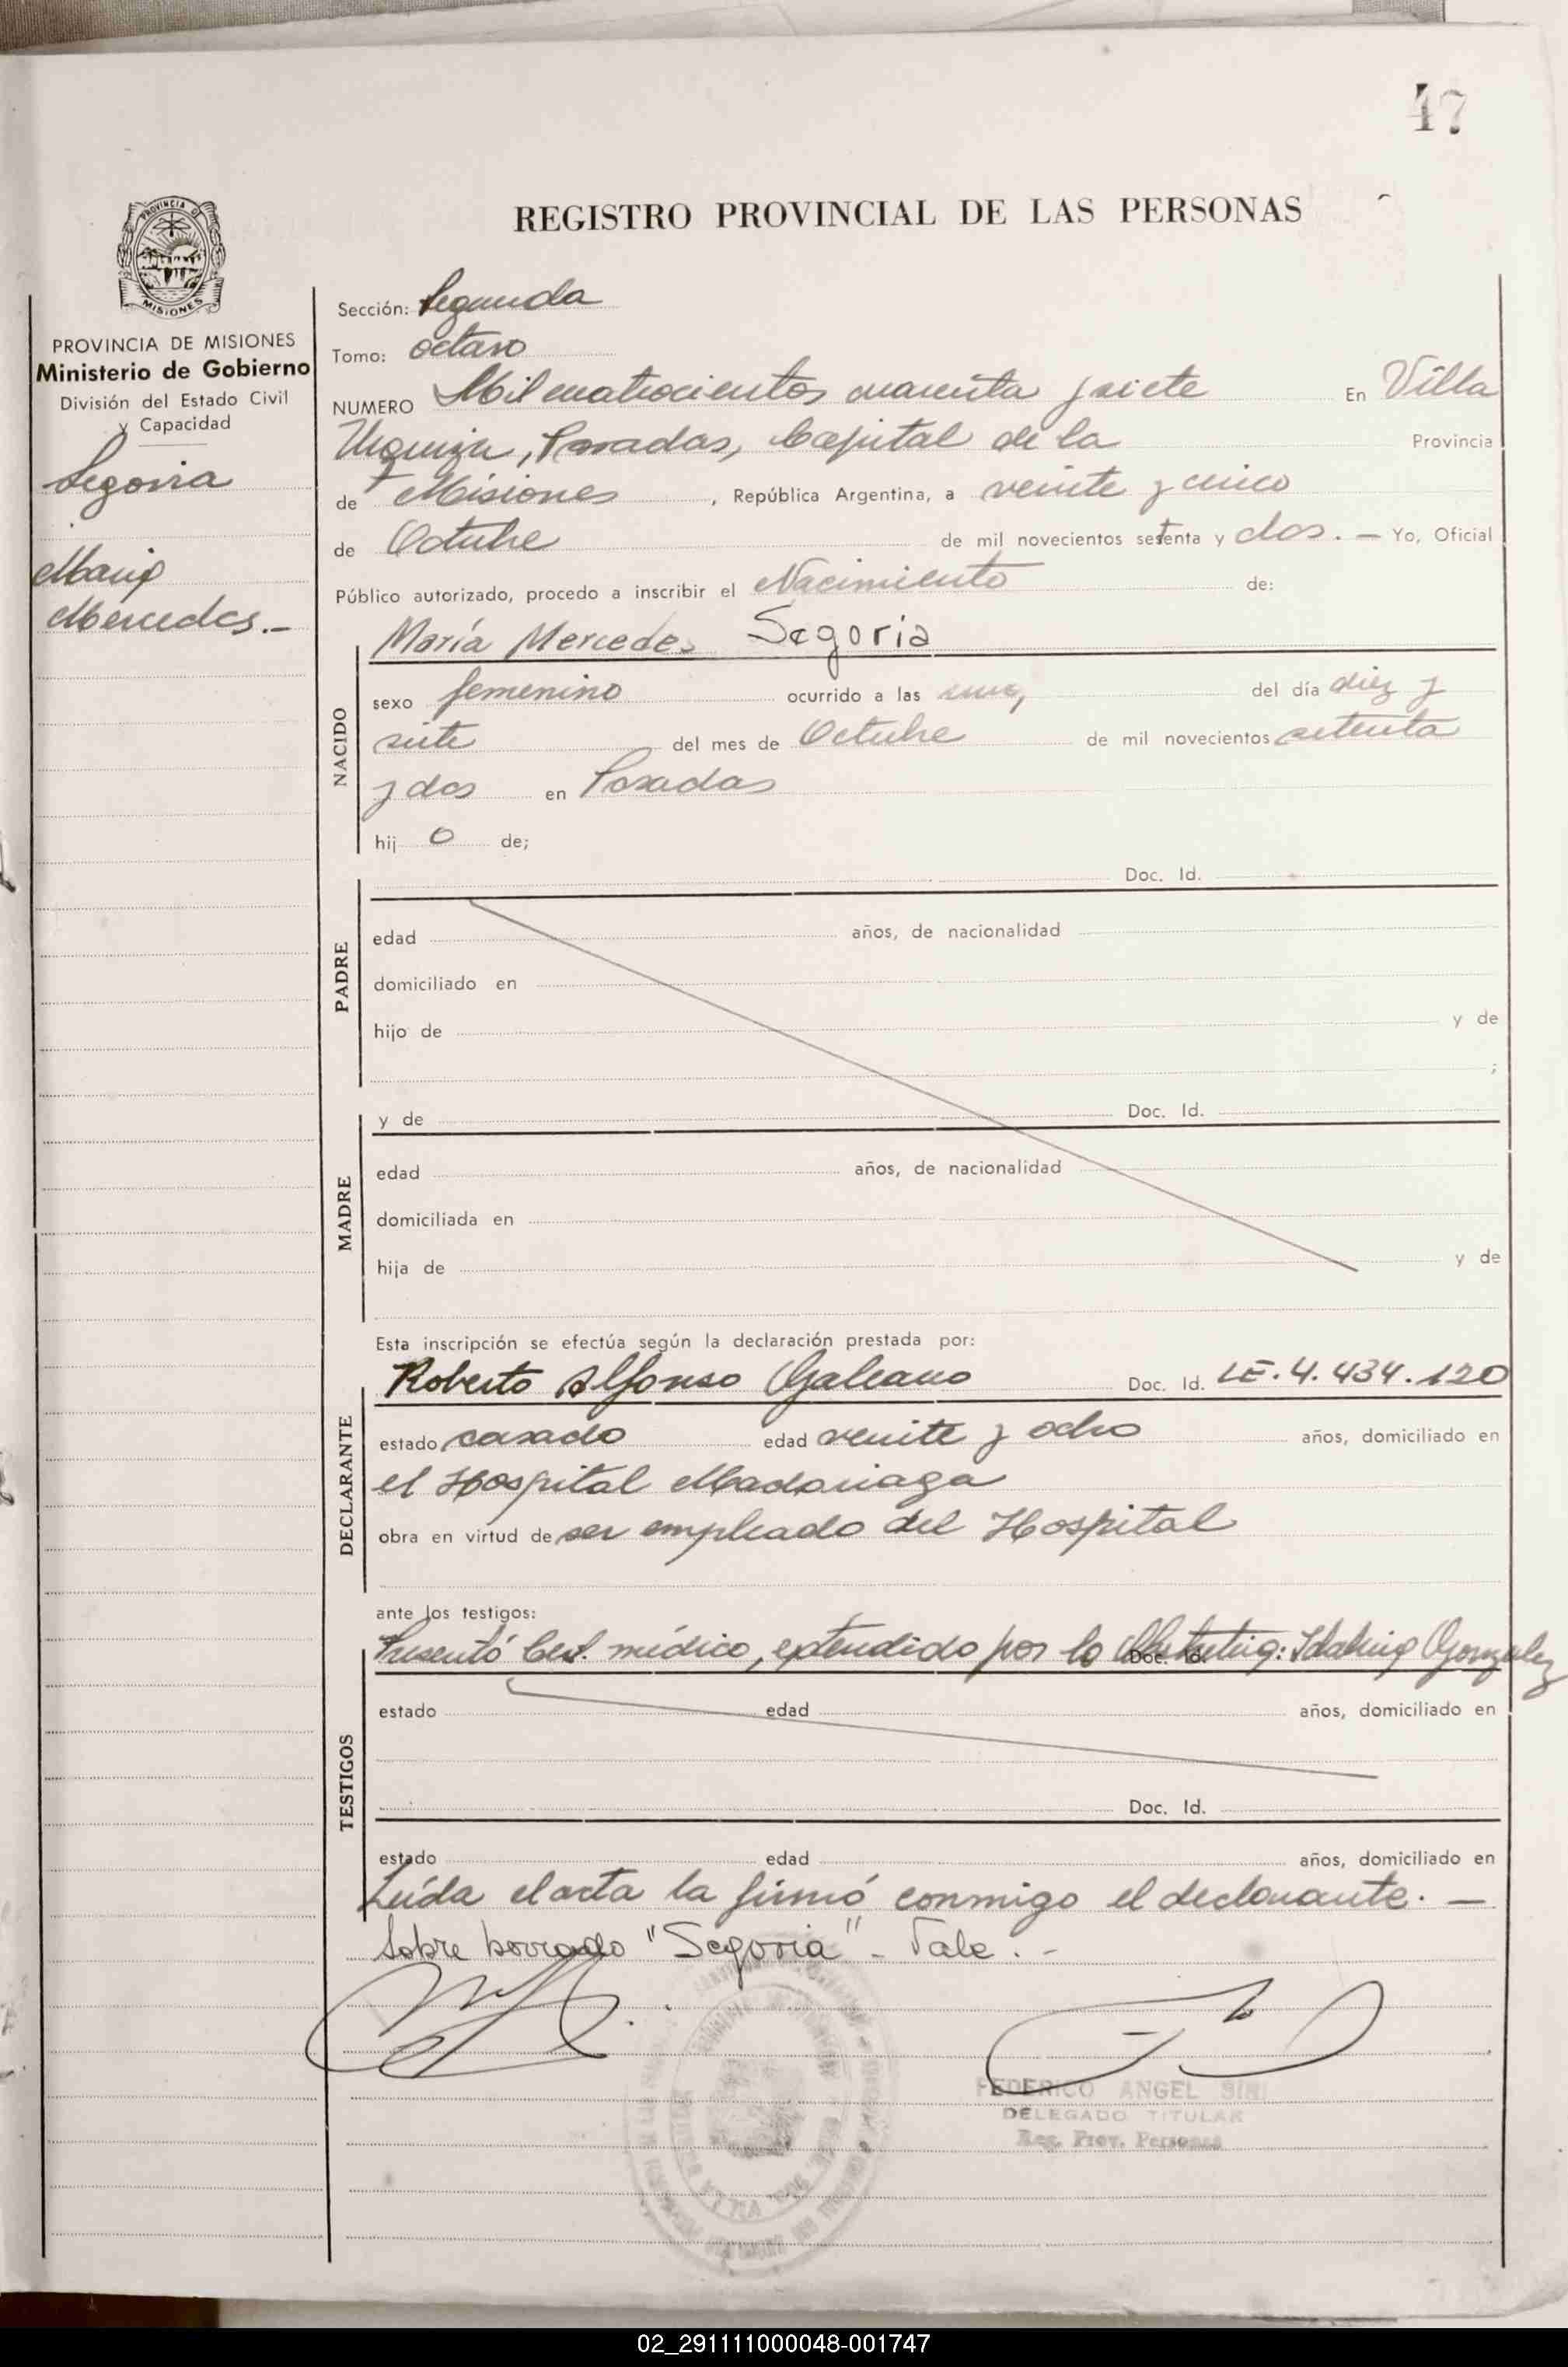 47
REGISTRO PROVINCIAL DE LAS PERSONAS
PROVINCIA DE MISIONES
Ministerio de Gobierno
División del Estado Civil
y Capacidad
Segovia
María
Mercedes.-
Sección: Segunda
Tomo: octavo
NUMERO Mil cuatrocientos cuarenta y siete En Villa
Urquiza, Posadas, Capital de la Provincia
de Misiones, República Argentina, a veinte y cinco
de Octubre de mil novecientos setenta y dos. — Yo, Oficial
Público autorizado, procedo a inscribir el Nacimiento de:
NACIDO
María Mercedes Segovia
sexo femenino ocurrido a las del día diez y
siete del mes de Octubre de mil novecientos setenta
y dos en Posadas
hij o de;
PADRE
Doc. Id.
edad años, de nacionalidad
domiciliado en
hijo de y de
;
MADRE
y de Doc. Id.
edad años, de nacionalidad
domiciliada en
hija de y de
Esta inscripción se efectúa según la declaración prestada por:
DECLARANTE
Roberto Alfonso Galeano Doc. Id. LE. 4.434.120
estado casado edad veinte y ocho años, domiciliado en
el Hospital Madariaga
obra en virtud de ser empleado del Hospital
ante los testigos:
TESTIGOS
Presentó Cert. médico, extendido por la Doc. Id. González
estado edad años, domiciliado en
Doc. Id.
estado edad años, domiciliado en
Leída el acta la firmó conmigo el declarante. —
Sobre borrado "Segovia" - Vale. -
FEDERICO ANGEL
DELEGADO TITULAR
Reg. Prov. Personas
02_291111000048-001747